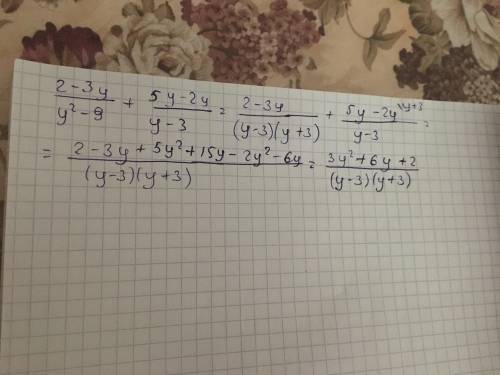 (2-3y)/(y²-9) + (5y-2y)/(y-3) = (2-3y)/((y-3)(y+3)) + (5y-2y)/(y-3) \y+3 =
= (2-3y+5y²+15y-2y²-6y)/((y-3)(y+3)) = (3y²+6y+2)/((y-3)(y+3))